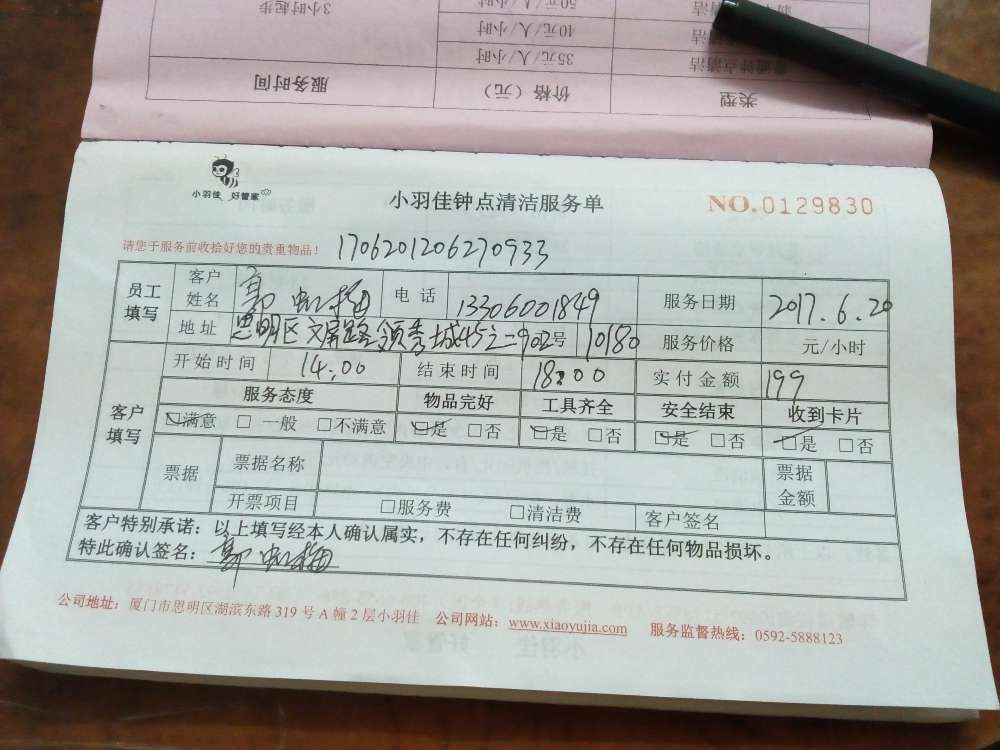 3小时起步 元/人/小时 50
40元/人/小时
35元/人/小时
服务时间 价格（元） 类型
小羽佳 好管家
小羽佳钟点清洁服务单
NO.0129830
请您于服务前收拾好您的贵重物品！ 1706201206270933
员工填写 客户姓名 郭虹梅 电话 13306001849 服务日期 2017.6.20
地址 思明区文屏路领秀城45之二902号 10180 服务价格 元/小时
客户填写 开始时间 14:00 结束时间 18:00 实付金额 199
服务态度 物品完好 工具齐全 安全结束 收到卡片
☑满意 □一般 □不满意 ☑是 □否 ☑是 □否 ☑是 □否 ☑是 □否
票据 票据名称 票据金额
开票项目 □服务费 □清洁费 客户签名
客户特别承诺：以上填写经本人确认属实，不存在任何纠纷，不存在任何物品损坏。
特此确认签名：郭虹梅
公司地址：厦门市思明区湖滨东路319号A幢2层小羽佳 公司网站：www.xiaoyujia.com 服务监督热线：0592-5888123